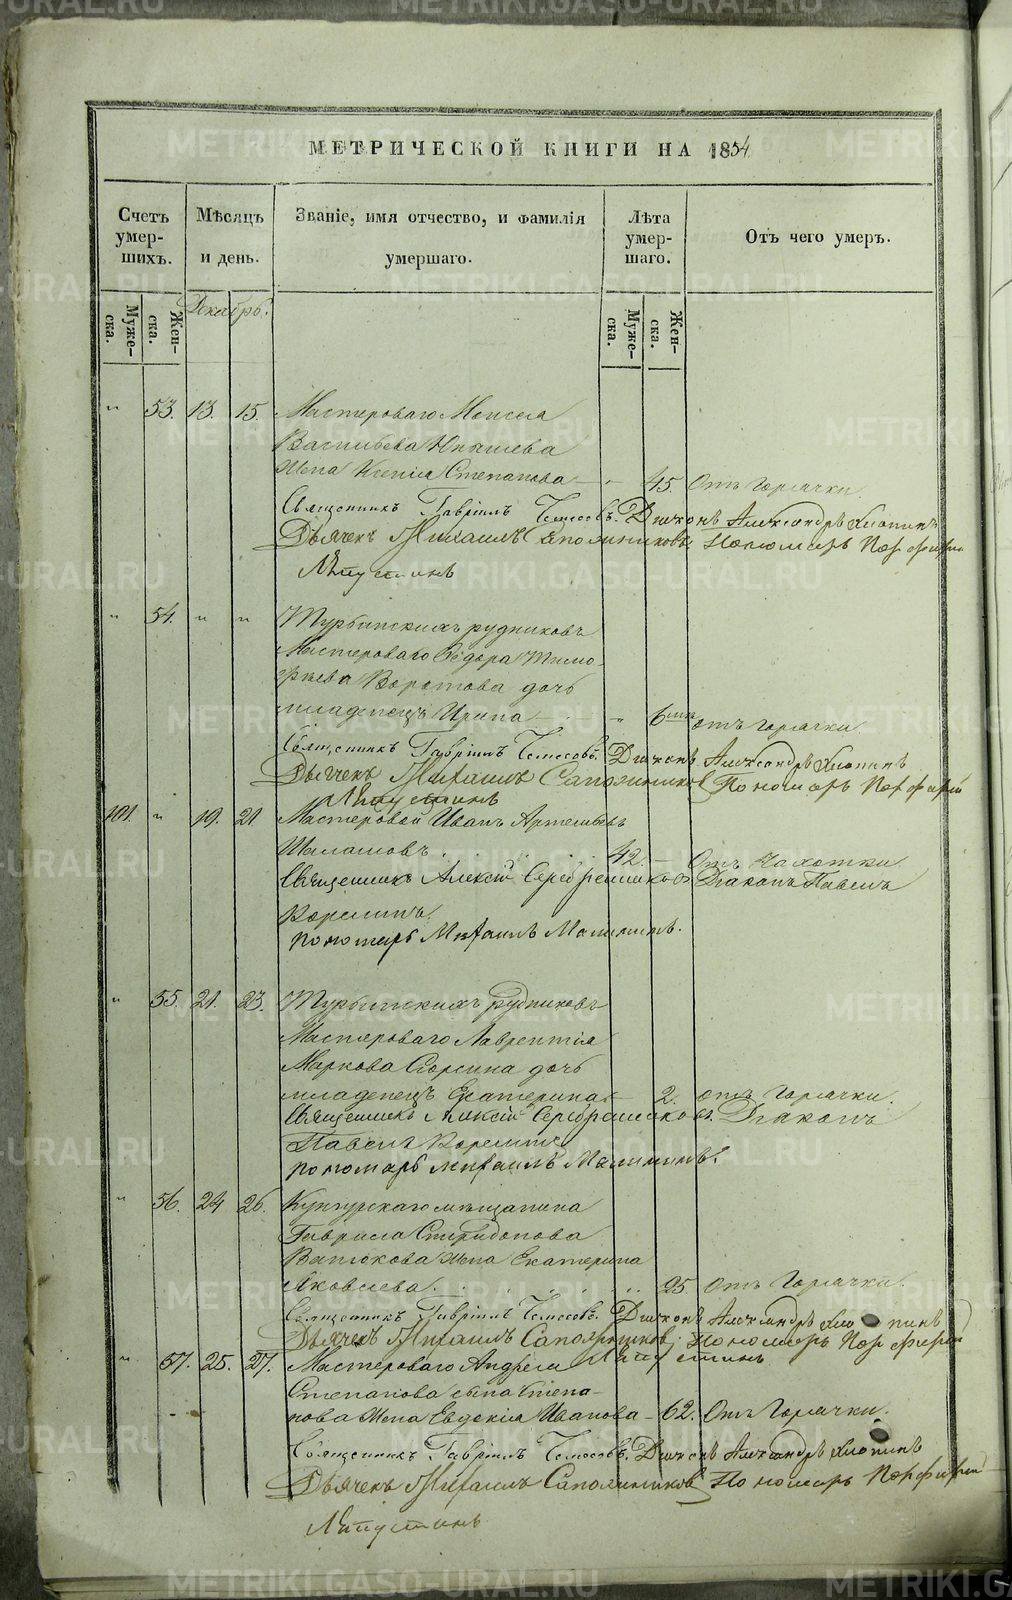 МЕТРИЧЕСКОЙ КНИГИ НА 1854
Счетъ умер-шихъ.
Мѣсяцъ и день.
Званіе, имя отчество, и фамилія умершаго.
Лѣта умер-шаго.
Отъ чего умеръ.
Муже-ска.
Жен-ска.
Декабрь.
Муже-ска.
Жен-ска.
" 53. 13. 15. Мастероваго Моисея
Васильева
Жена Ксенія Степанова - " 45. Отъ Горячки
Священникъ Гавріилъ Діаконъ Александръ Хлопинъ
Дьячекъ Михаилъ Сапожниковъ Пономарь Порфирій
Лапустинъ
" 54. " " Турьинскихъ рудниковъ
Мастероваго Ѳедора Тимо-
фѣева Воротова дочь
младенецъ Ирина - " 6 отъ горячки
Священникъ Гавріилъ Діаконъ Александръ Хлопинъ
Дьячекъ Михаилъ Сапожниковъ Пономарь Порфирій
Лапустинъ
101. " 19. 21. Мастеровой Иванъ Артемьевъ
Шалашовъ. 42. - Отъ Чахотки
Священникъ Алексій Серебренниковъ Діаконъ Павелъ
Корелинъ.
пономарь Михаилъ Малининъ.
" 55. 21. 23. Турьинскихъ рудниковъ
Мастероваго Лаврентія
Маркова дочь
младенецъ Екатерина - 2. отъ Горячки.
Священникъ Алексій Серебренниковъ. Діаконъ
Павелъ Корелинъ
пономарь Михаилъ Малининъ.
" 56. 24 26. Кунгурскаго мѣщанина
Гаврила Спиридонова
Ватюкова жена Екатерина
Яковлева. 95. Отъ Горячки.
Священникъ Гавріилъ Діаконъ Александръ Хлопинъ
Дьячекъ Михаилъ Сапожниковъ. Пономарь Порфирій
Лапустинъ
" 57. 25. 27. Мастероваго Андрея
Степанова сына Степа-
нова Жена Евдокія Иванова - 62. Отъ Горячки.
Священникъ Гавріилъ Діаконъ Александръ Хлопинъ
Дьячекъ Михаилъ Сапожниковъ Пономарь Порфирій
Лапустинъ
METRIKI.GASO-URAL.RU